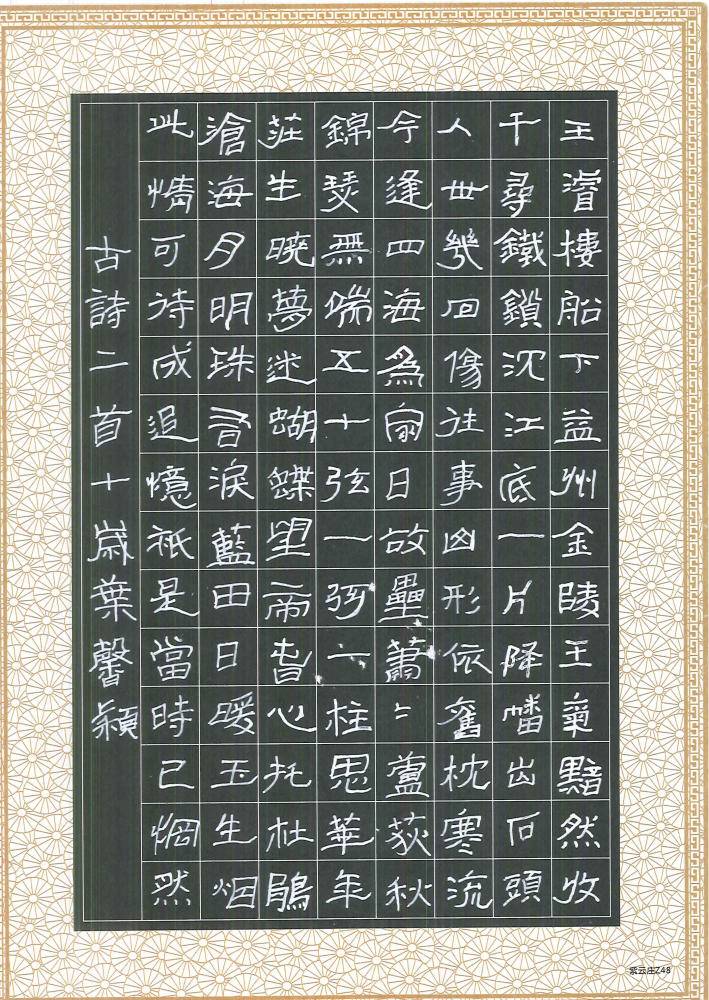 王濬樓船下益州金陵王氣黯然收
千尋鐵鎖沈江底一片降幡出石頭
人世幾回傷往事山形依舊枕寒流
今逢四海爲家日故壘蕭〻蘆荻秋
錦瑟無端五十弦一弦一柱思華年
莊生曉夢迷蝴蝶望帝春心托杜鵑
滄海月明珠有淚藍田日暖玉生烟
此情可待成追憶祇是當時已惘然
古詩二首十歲葉馨穎
紫云庄Z48